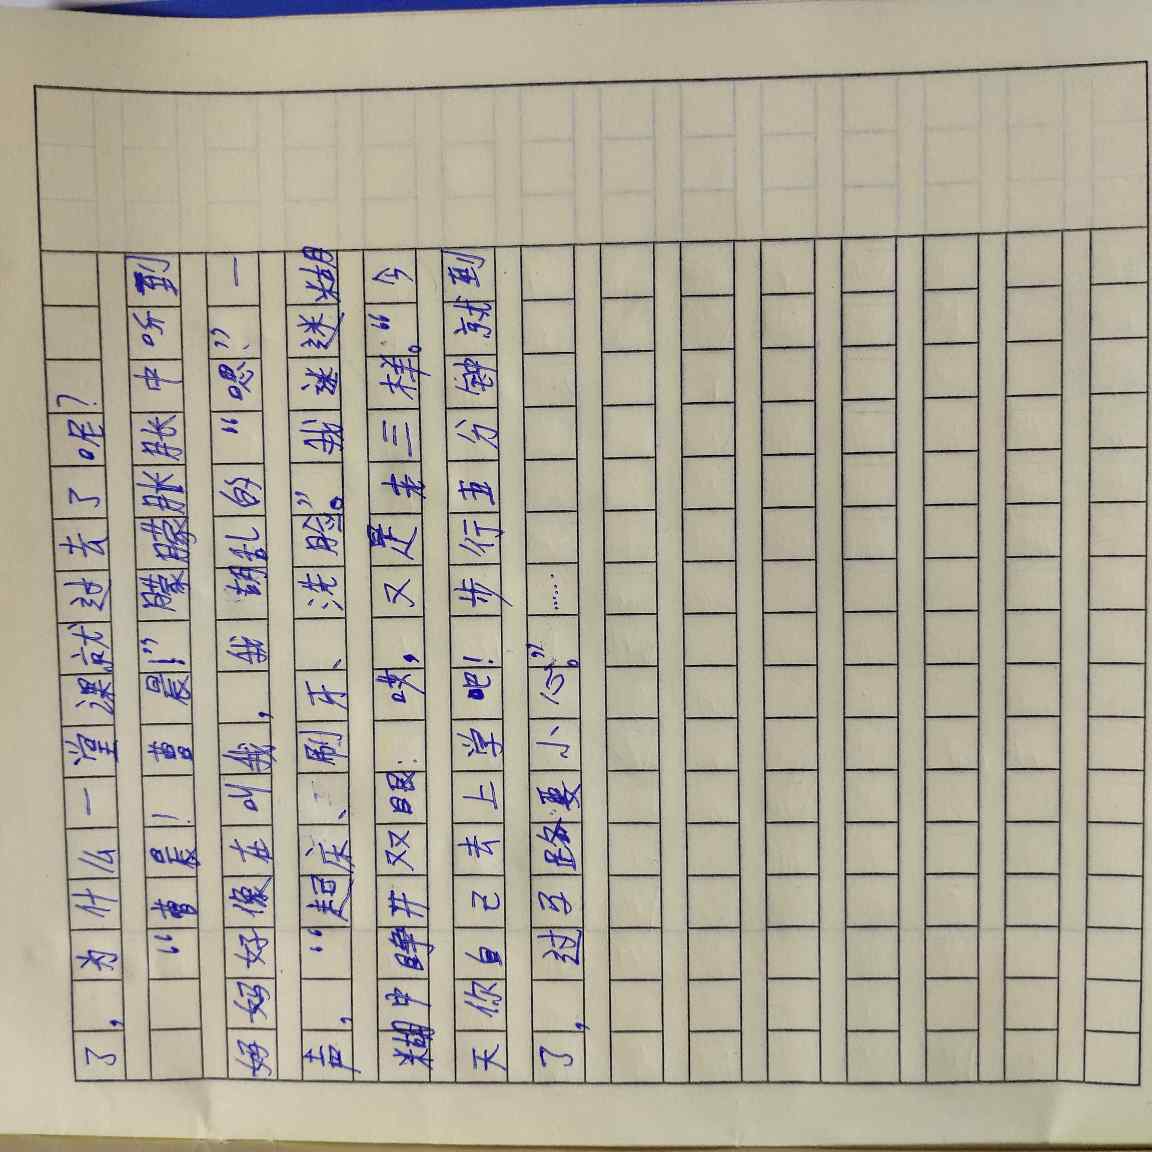 了,为什么一堂课就过去了呢?
“曹晨!曹晨!”朦朦胀胀中听到
妈妈好像在叫我,我胡乱的“嗯”、一
声,“起床、刷牙、洗脸。”我迷迷糊
糊中睁开双眼:唉,又是老三样。“今
天你自己去上学吧!步行五分钟就到
了,过马路要小心。”……